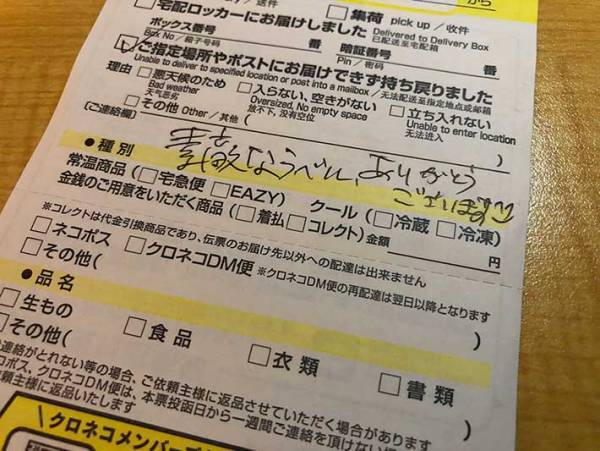 から
□宅配ロッカーにお届けしました Delivered to Delivery Box 已配送至宅配箱
□集荷 pick up / 收件
ボックス番号 Box No / 箱子号码 番 暗証番号 Pin / 密码 番
☑ご指定場所やポストにお届けできず持ち戻りました
Unable to deliver to specified location or post into a mailbox / 无法配送至指定地点或邮箱
理由 □悪天候のため Bad weather 天气恶劣 □入らない、空きがない Oversized, No empty space 放不下, 没有空位 □立ち入れない Unable to enter location 无法进入
□その他 Other / 其他 ( )
(ご連絡欄)
素敵なラベル、ありがとうございます
●種別
常温商品(□宅急便 □EAZY) クール(□冷蔵 □冷凍)
金銭のご用意をいただく商品(□着払 □コレクト)金額 円
※コレクトは代金引換商品であり、伝票のお届け先以外への配達は出来ません
□ネコポス □クロネコDM便 ※クロネコDM便の再配達は翌日以降となります
□その他( )
●品名
□生もの □食品 □衣類 □書類
□その他( )
連絡がとれない等の場合、ご依頼主様に返品させていただく場合があります
ロポス、クロネコDM便は、本票投函日から一週間ご連絡を頂けない場
頼主様に返品いたします
\クロネコメンバーズ